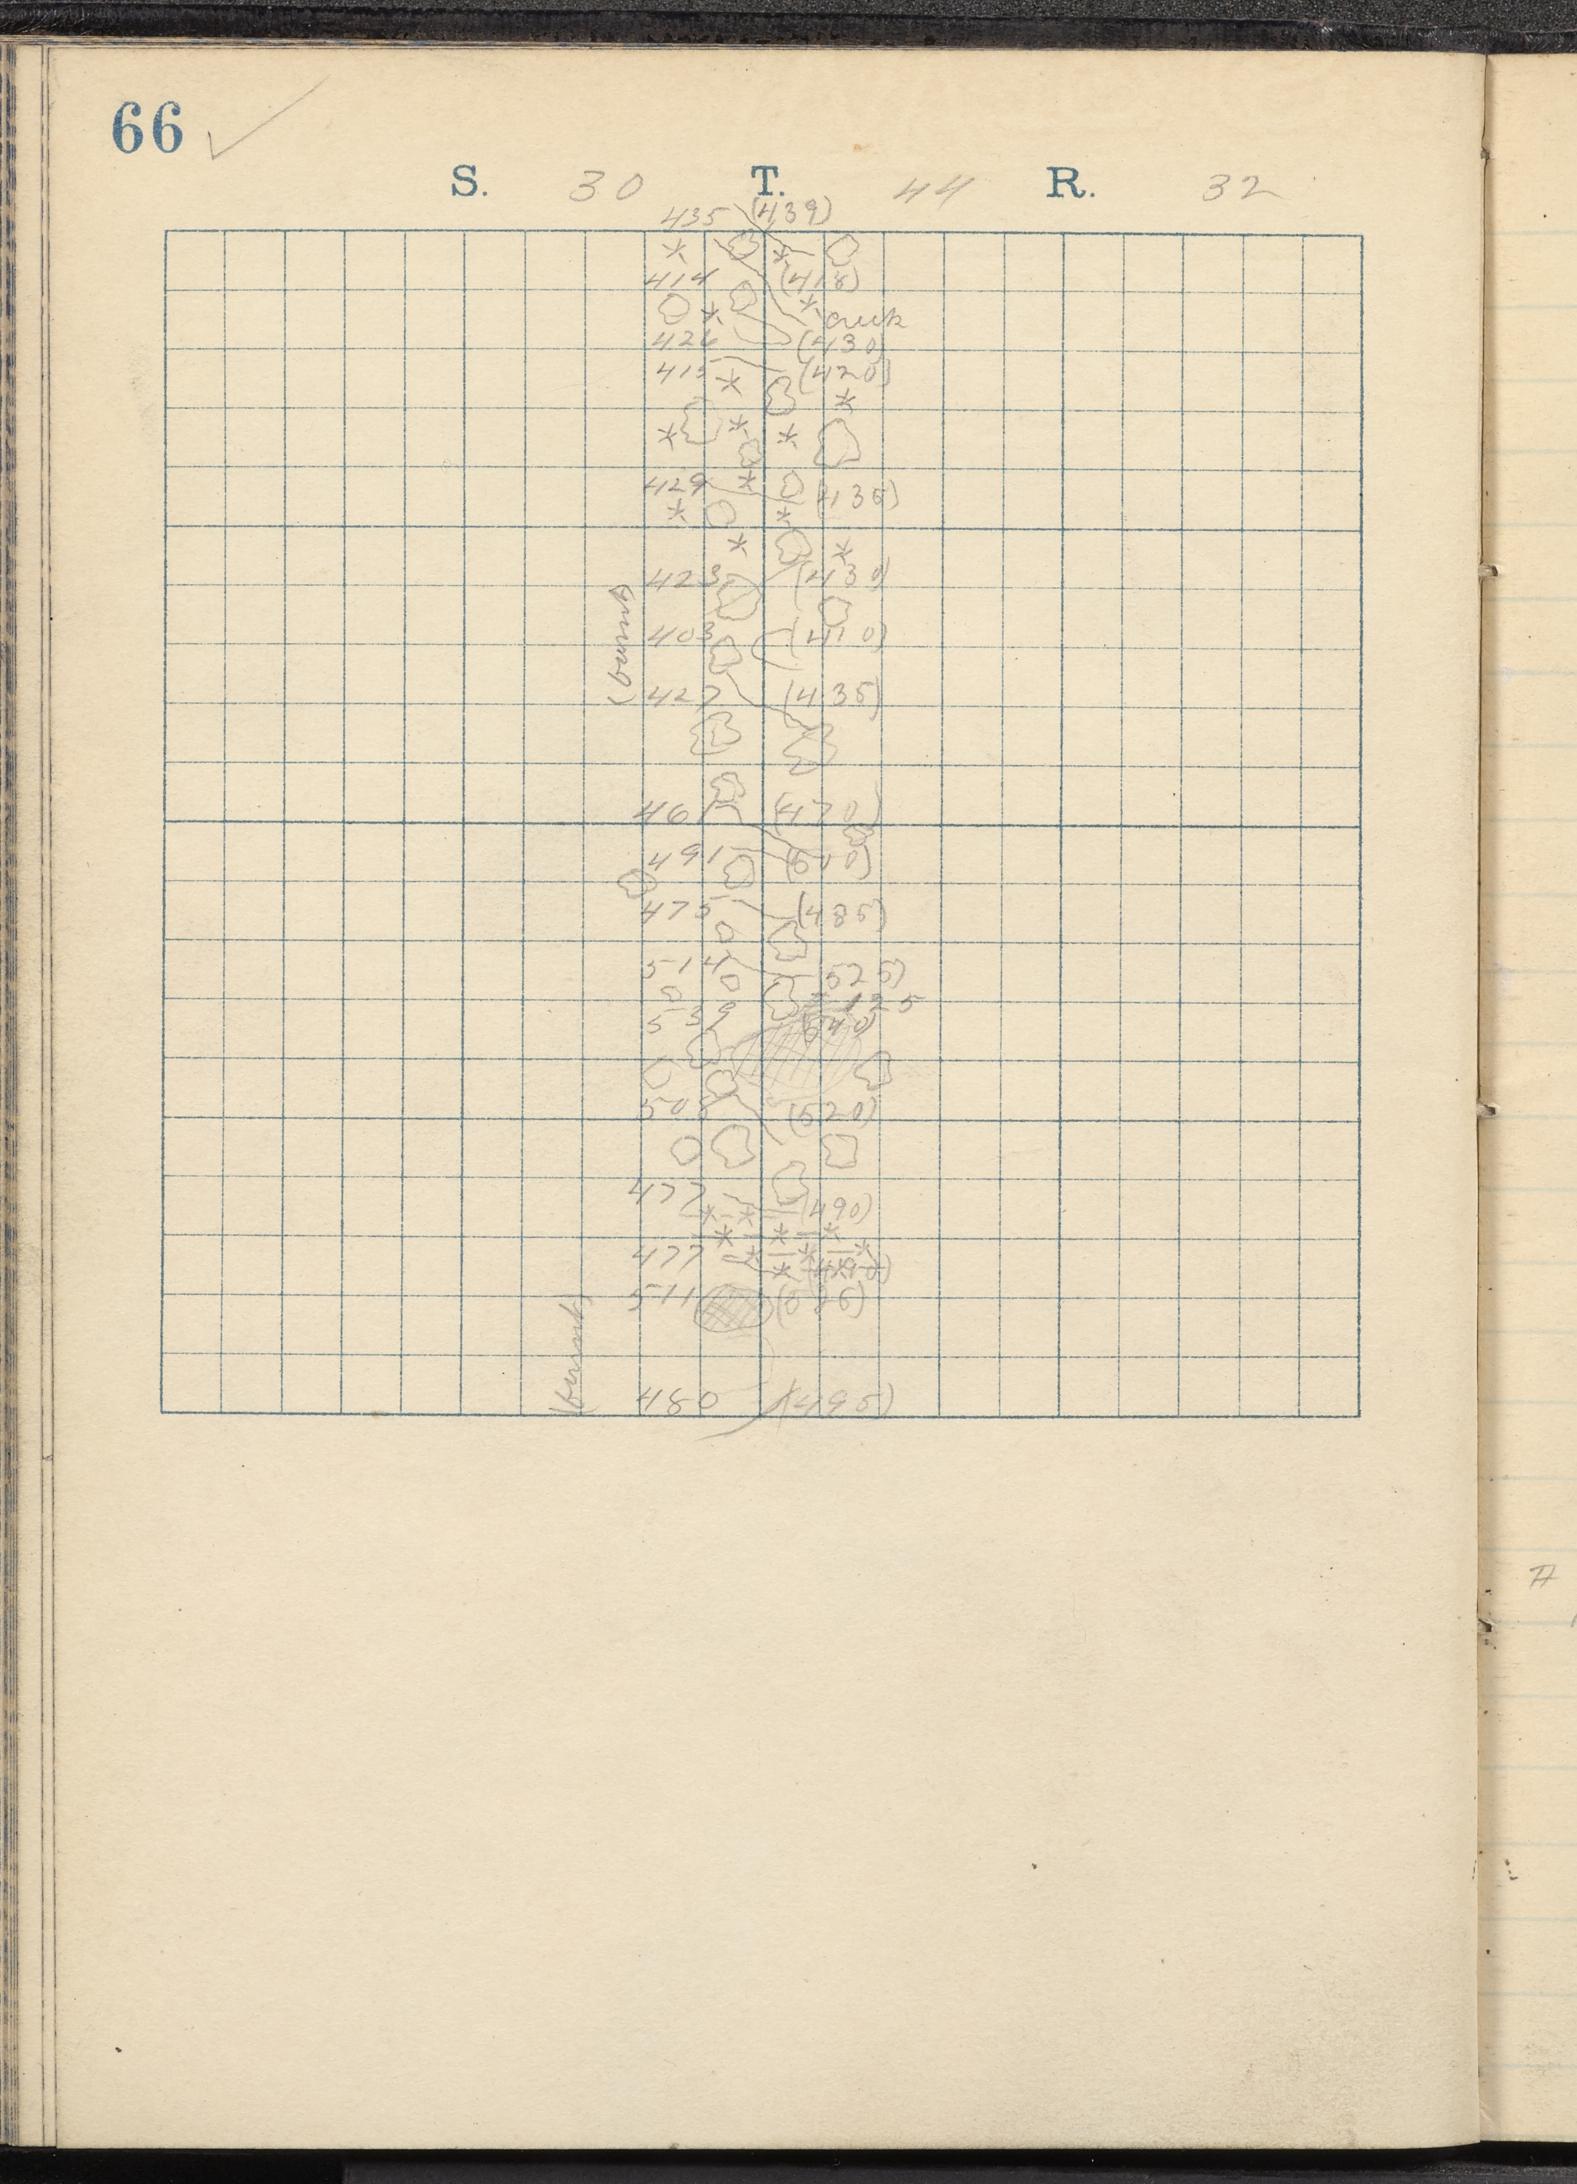 66 ✓
S. 30 T. 44 R. 32
435 (439)
414 (418)
creek
426 (430)
415 (420)
429 (435)
423 (430)
(burnt)
403 (410)
427 (435)
461 (470)
491 (500)
475 (485)
514 525)
= 125
539 (540)
508 (520)
477 (490)
477 (490)
511
(burnt)
480 (495)